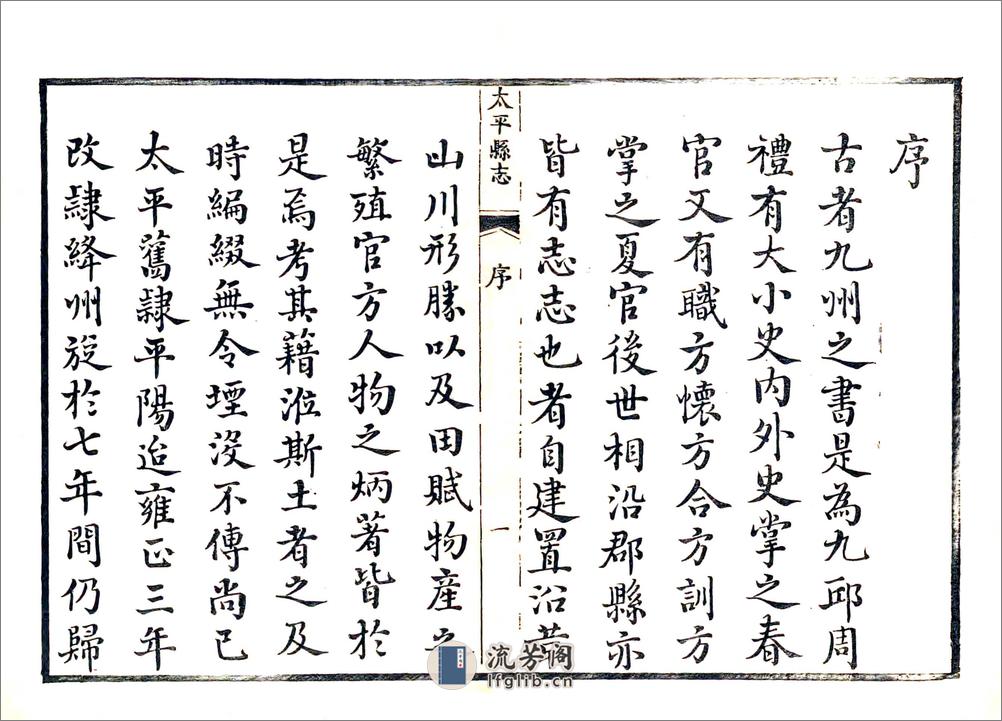 序
古者九州之書是為九邱周
禮有大小史内外史掌之春
官又有職方懷方合方訓方
掌之夏官後世相沿郡縣亦
皆有志志也者自建置沿革
太平縣志
序
一
山川形勝以及田賦物產之
繁殖官方人物之炳著皆於
是焉考其藉涖斯土者之及
時編綴無令堙沒不傳尚已
太平舊隷平陽迨雍正三年
改隷絳州旋於七年間仍歸
流芳阁
lfglib.cn